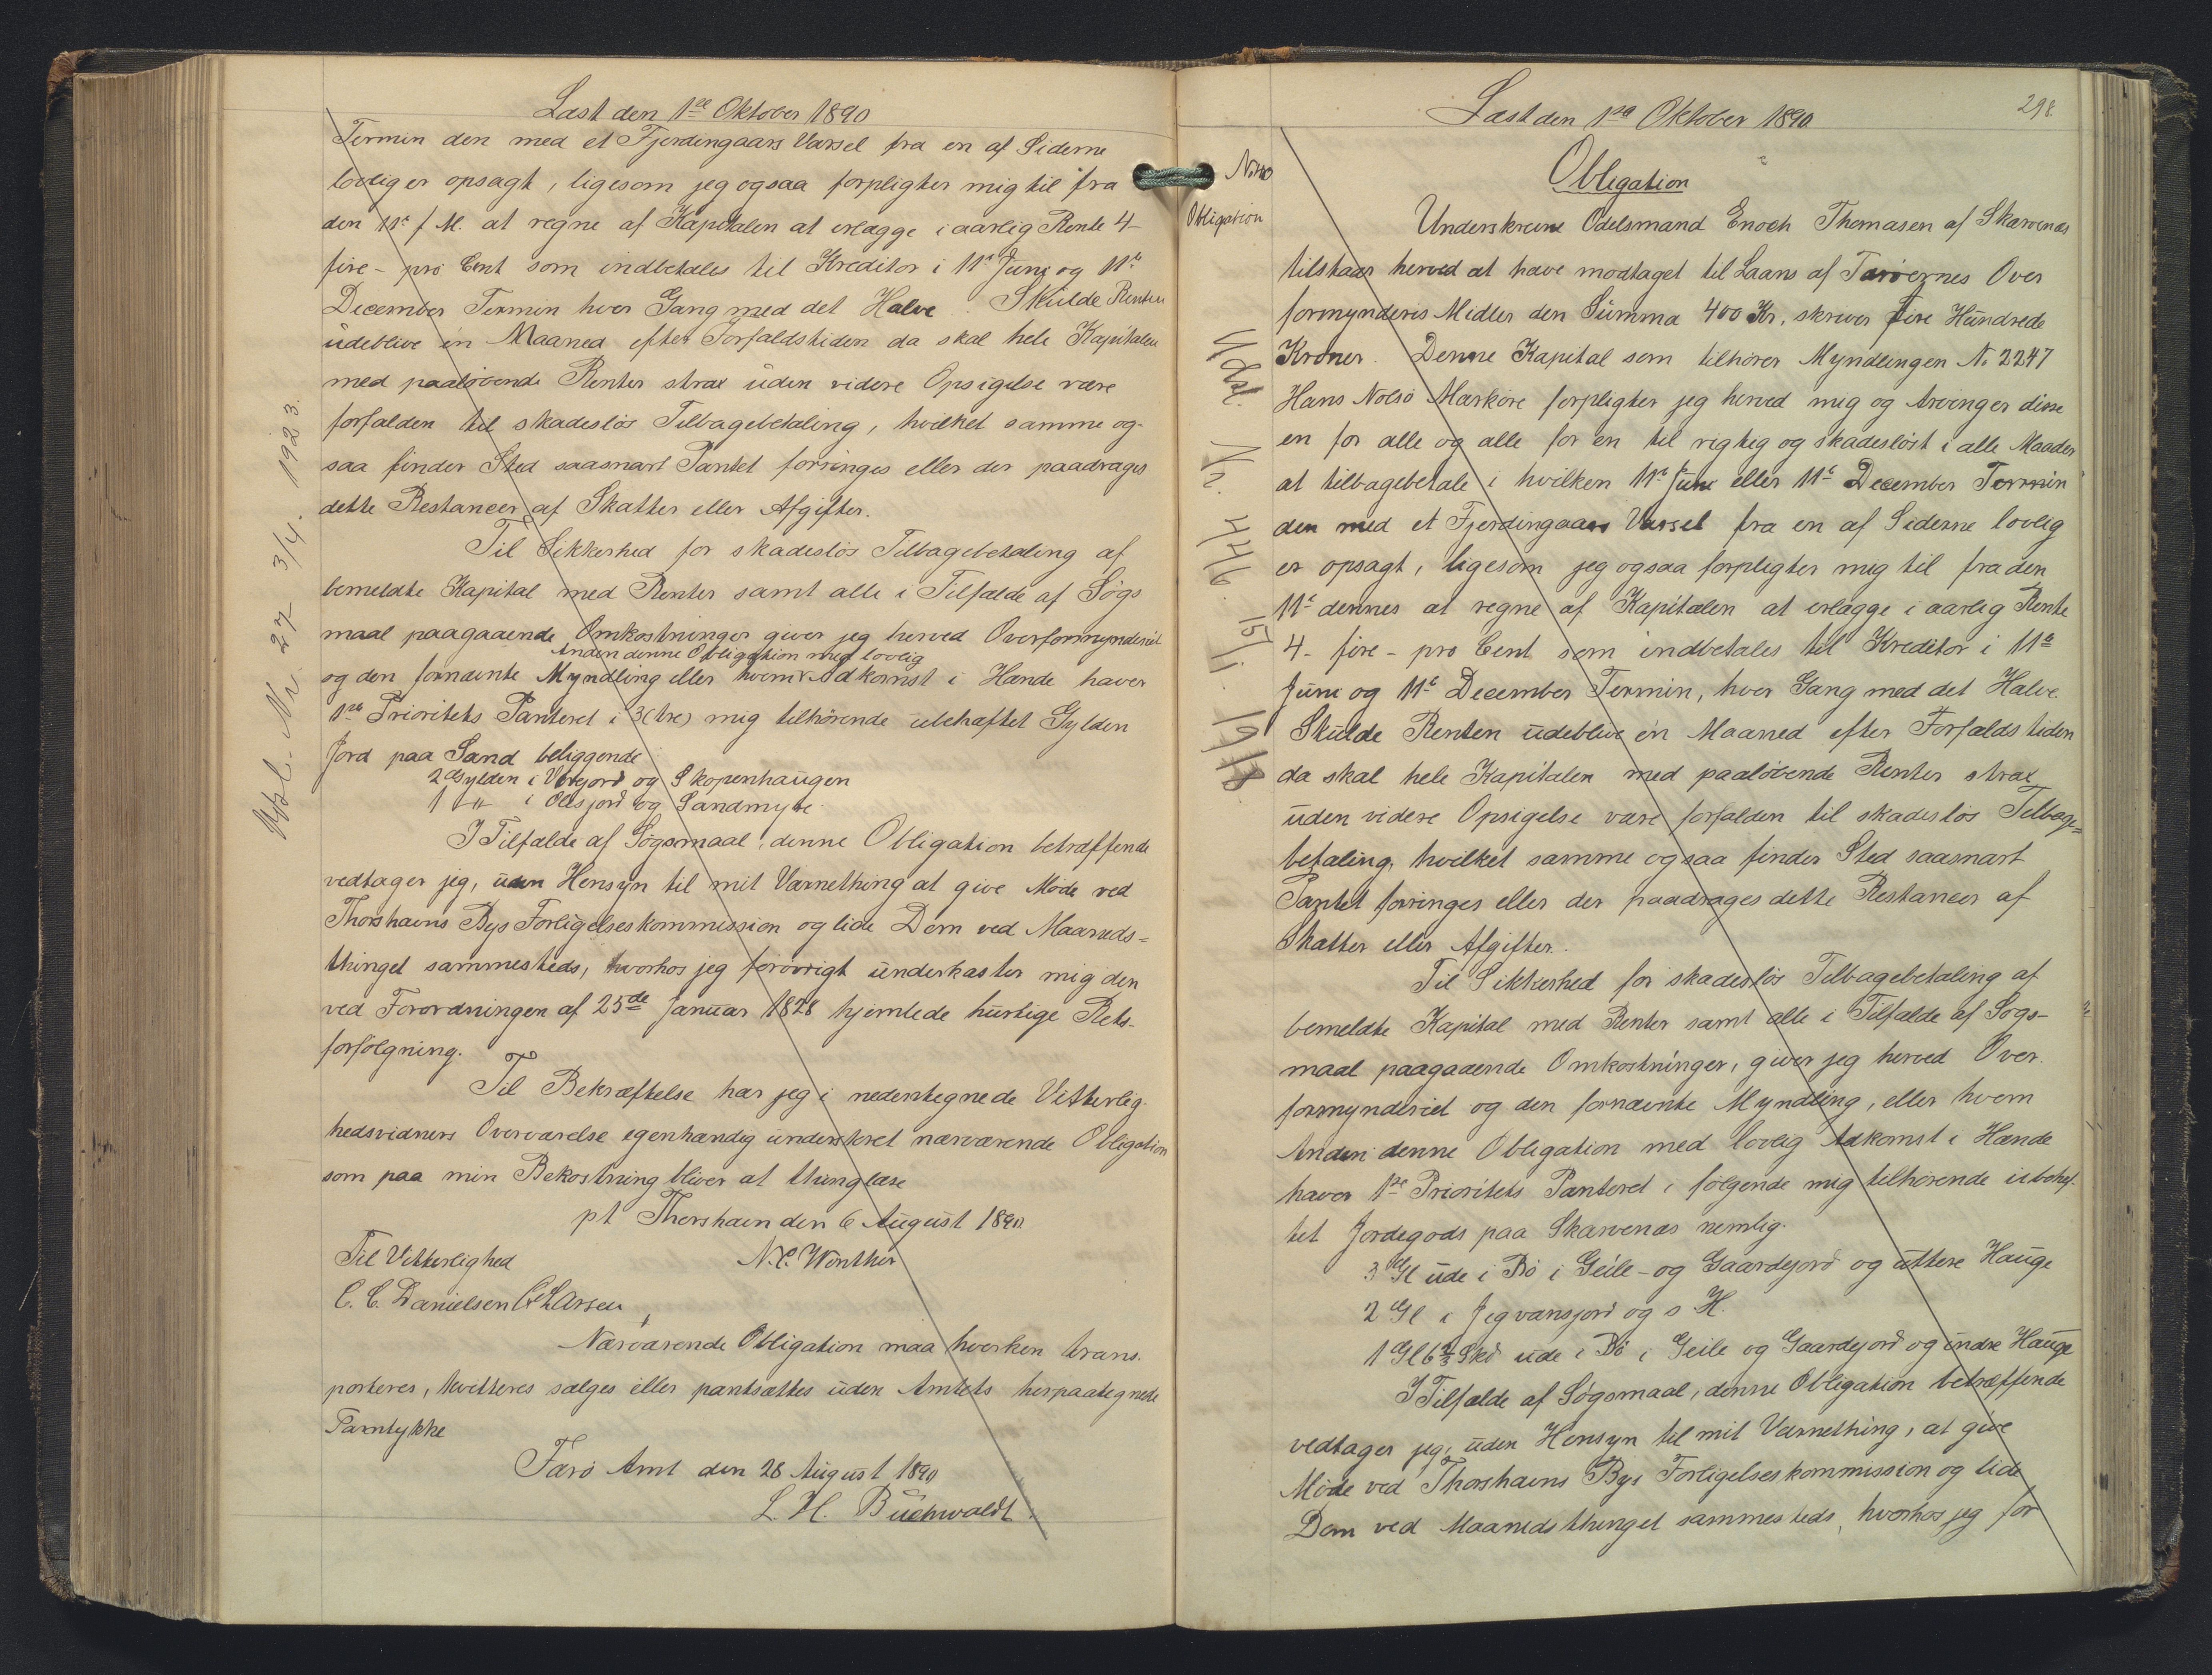 Læst den 1ste Oktober 1890
Termin den med et Fjerdingaars Varsel fra en af Siderne
lovlig er opsagt, ligesom jeg ogsaa forpligter mig til fra
den 11te f. M. at regne af Kapitalen at erlægge i aarlig Rente 4-
fire - pro Cent som indbetales til Kreditor i 11te Juni og 11te
December Termin hver Gang med det Halve. Skulde Renten
udeblive én Maaned efter Forfaldstiden da skal hele Kapitalen
med paaløbende Renter strax uden videre Opsigelse være
forfalden til skadesløs Tilbagebetaling, hvilket samme og-
saa finder Sted saasnart Pantet forringes eller der paadrages
dette Restancer af Skatter eller Afgifter.
Til Sikkerhed for skadesløs Tilbagebetaling af
bemeldte Kapital med Renter samt alle i Tilfælde af Søgs
maal paagaaende Omkostninger giver jeg herved Overformynderiet
Anden denne Obligation med lovlig
og den fornævnte Myndling eller hvem Adkomst i Hænde haver
1ste Prioritets Panteret i 3 (tre) mig tilhørende ubehæftet Gylden
Jord paa Sand beliggende
2 Gylden i Vegjord og Skopenhaugen
1 -"- i Olesjord og Sandmyre.
I Tilfælde af Søgsmaal, denne Obligation betræffende
vedtager jeg, uden Hensyn til mit Værnething at give Møde ved
Thorshavns Bys Forligelseskommission og lide Dom ved Maaneds=
thinget sammesteds, hvorhos jeg forøvrigt underkaster mig den
ved Forordningen af 25de Januar 1828 hjemlede hurtige Rets-
forfølgning.
Til Bekræftelse har jeg i nedentegnede Vitterlig-
hedsvidners Overværelse egenhændig underskret nærværende Obligation
som paa min Bekostning bliver at thinglæse
pt Thorshavn den 6 August 1890
Til Vitterlighed N. C. Winther
C. C. Danielsen C Larsen
Nærværende Obligation maa hverken trans-
porteres, kvitteres sælges eller pantsættes uden Amtets herpaategnede
Samtykke
Færø Amt den 28 August 1890
L. H. Buchwaldt.
Nr. 27 3/4. 1923.
Læst den 1ste Oktober 1890
298
Obligation
Obligation
Underskrevne Odelsmand Enoch Thomasen af Skarvenæs
tilstaar herved at have modtaget til Laans af Færøernes Over
formynderis Midler den Summa 400 Kr, skriver Fire Hundrede
Kroner. Denne Kapital som tilhører Myndlingen No 2247
Hans Nolsø Mærkøre forpligter jeg herved mig og Arvinger disse
en for alle og alle for en til rigtig og skadesløst i alle Maader
at tilbagebetale i hvilken 11te Juni eller 11te December Termin
den med et Fjerdingaars Varsel fra en af Siderne lovlig
er opsagt, ligesom jeg ogsaa forpligter mig til fra den
11te dennes at regne af Kapitalen at erlægge i aarlig Rente
4- fire - pro Cent som indbetales til Kreditor i 11te
Juni og 11te December Termin, hver Gang med det Halve.
Skulde Renten udeblive én Maaned efter Forfaldstiden
da skal hele Kapitalen med paaløbende Renter strax
uden videre Opsigelse være forfalden til skadesløs Tilbage=
betaling, hvilket samme ogsaa finder Sted saasnart
Pantet forringes eller der paadrages dette Restancer af
Skatter eller Afgifter.
Til Sikkerhed for skadesløs Tilbagebetaling af
bemeldte Kapital med Renter samt alle i Tilfælde af Søgs-
maal paagaaende Omkostninger, giver jeg herved Over
formynderiet og den fornævnte Myndling, eller hvem
Anden denne Obligation med lovlig Adkomst i Hænde
haver 1ste Prioritets Panteret i følgende mig tilhørende ubehef-
tet Jordegods paa Skarvenæs nemlig.
3 Gl ude i Bø i Geile- og Gaardejord og uttere Hauge
2 Gl i Jegvansjord og s. H.
1 Gl 6 2/3 Skd ude i Bø i Geile og Gaardejord og indre Hauge
I Tilfælde af Søgsmaal, denne Obligation betræffende
vedtager jeg, uden Hensyn til mit Værnething, at give
Møde ved Thorshavns Bys Forligelseskommission og lide
Dom ved Maanedsthinget sammesteds, hvorhos jeg for